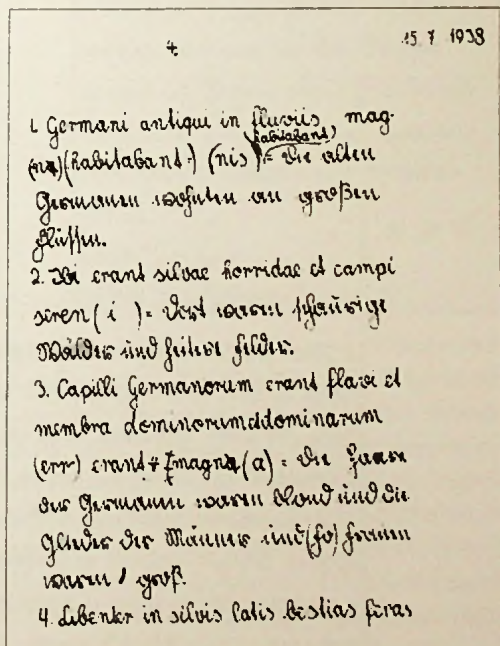 4. 15 7 1938
1. Germani antiqui in fluviis mag-
habitabant)
(na) (habitabant.) (nis) = Die alten
Germanen wohnten an großen
Flüssen.
2. Ibi erant silvae horridae et campi
seren( i ) = Dort waren schaurige
Wälder und heitere Felder.
3. Capilli Germanorum erant flavi et
membra dominorum et dominarum
(err) erant magna (a) = Die Haare
der Germanen waren blond und die
Glieder der Männer und (fo) Frauen
waren groß.
4. Libenter in silvis latis bestias feras